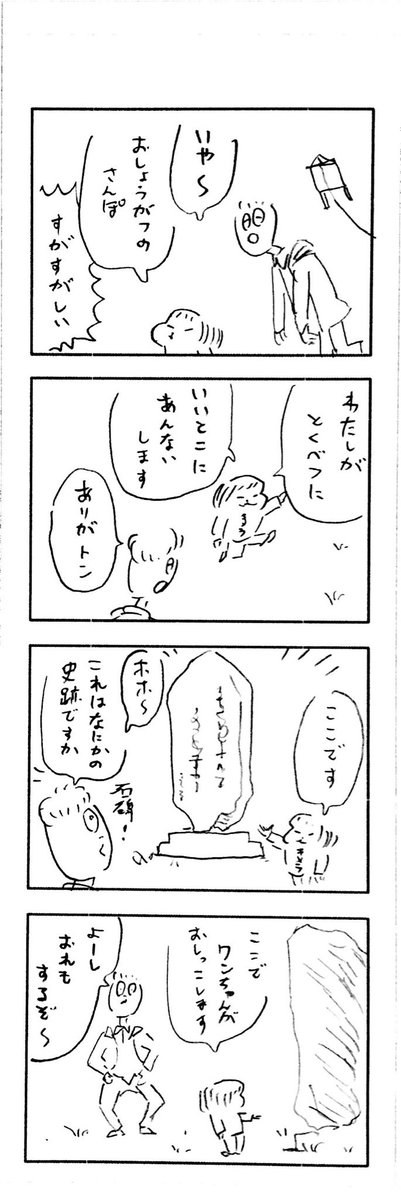 いや〜
おしょうがつの
さんぽ
すがすがしい
わたしが
とくべつに
いいとこに
あんない
します
ありがトン
ここです
ホホ〜
これはなにかの
史跡ですか
石碑！
ここで
ワンちゃんが
おしっこします
よーし
おれも
するぞ〜